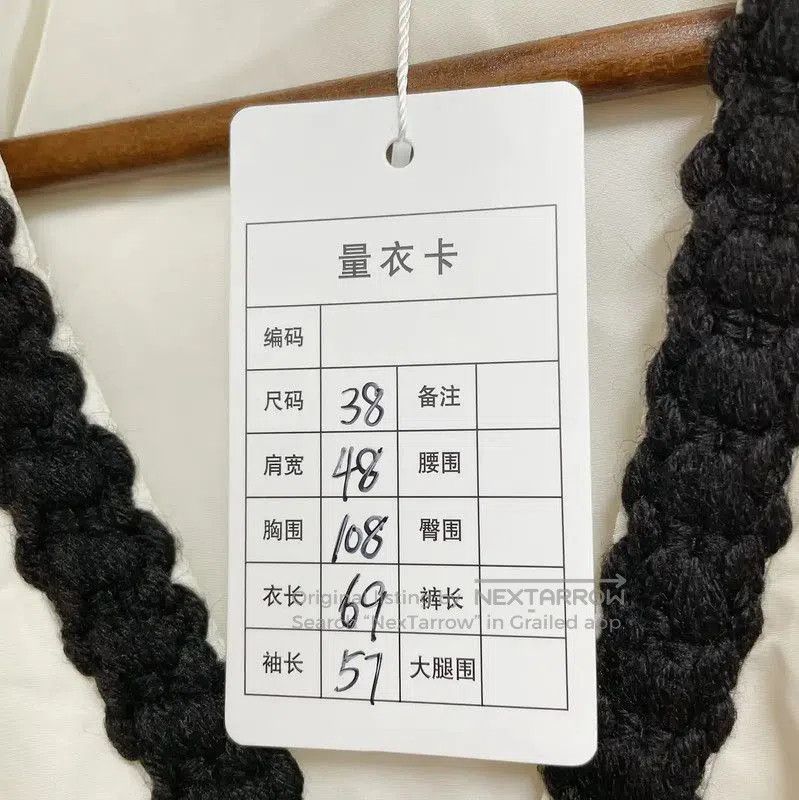 量衣卡
编码
尺码 38 备注
肩宽 48 腰围
胸围 108 臀围
衣长 69 裤长
袖长 57 大腿围
Original listing by NEXTARROW
Search "NexTarrow" in Grailed app